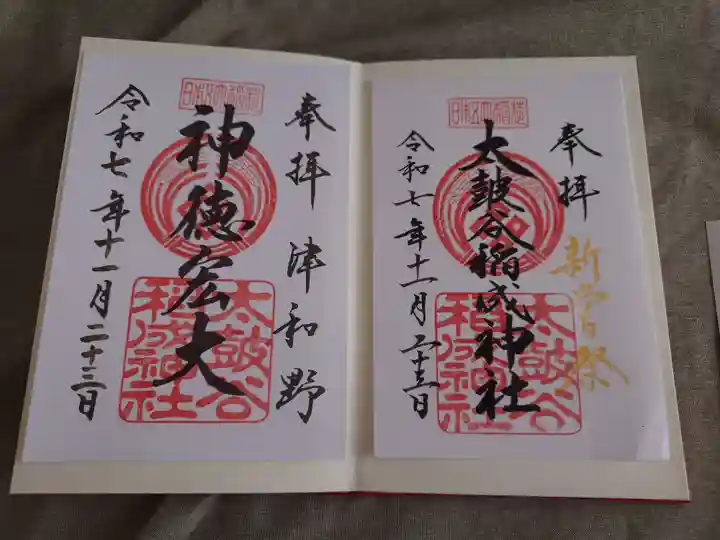 奉拝
新嘗祭
太皷谷稲成神社
日本五大稲荷
太皷谷
稲成神社
令和七年十一月二十三日
奉拝 津和野
神徳宏大
日本五大稲荷
太皷谷
稲成神社
令和七年十一月二十三日